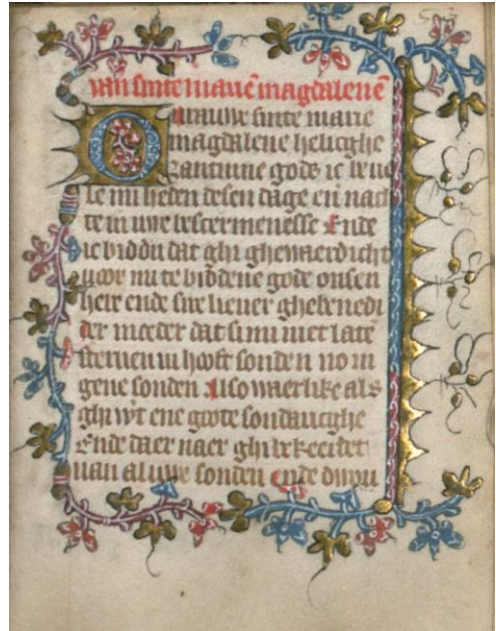 van sinte marien magdalenen
O vrauwe sinte marie
magdalene helighe
santinne gods ic beue
le mi heden desen dage en nach
te in uwe bescermenesse Ende
ic biddu dat ghi ghewaerdicht
uoor mi te biddene gode onsen
heir ende sire lieuer ghebenedi
der moeder dat si mi niet late
steruen in hooft sonden no in
gene sonden Also waerlike als
ghi wt ene groote sondaerighe
Ende daer naer ghi bekeerdet
uan al uwe sonden Ende dwou